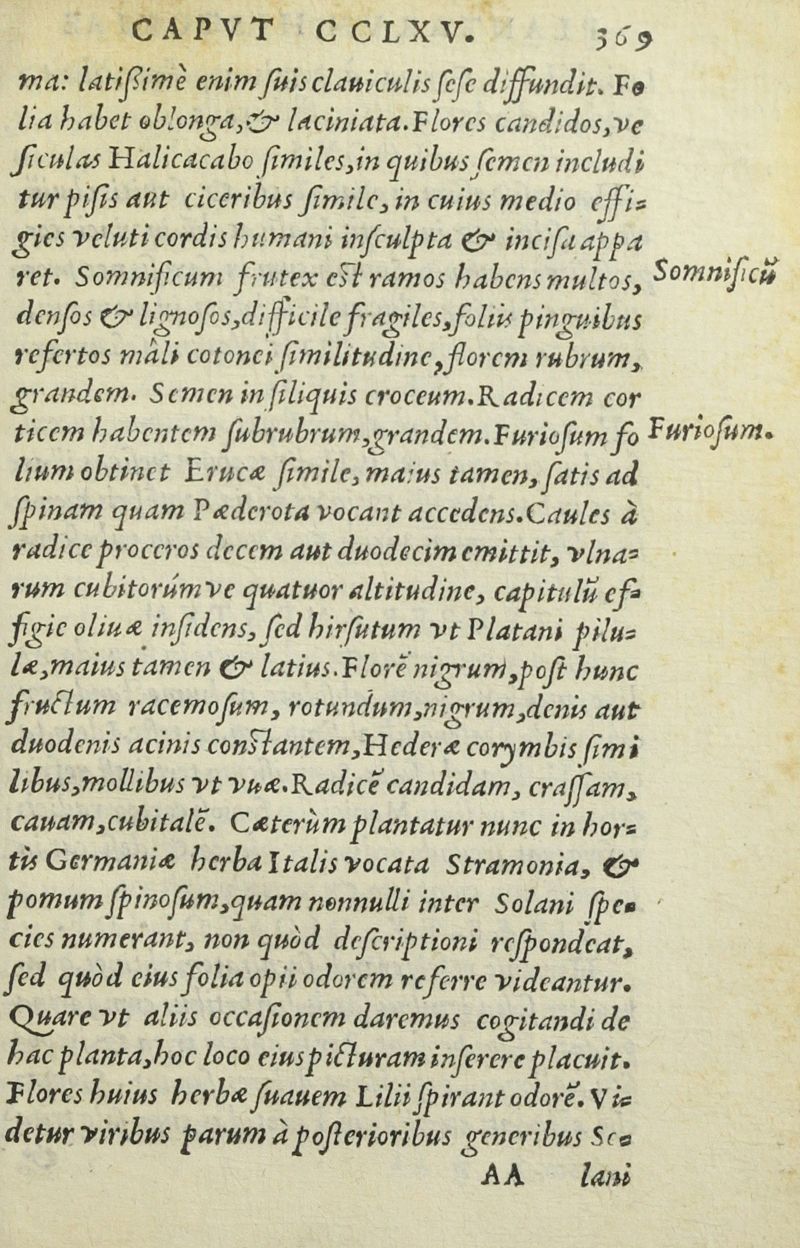 CAPVT CCLXV. 369
ma: latißimè enim ſuis clauiculis ſeſe diffundit. Fo
lia habet oblonga, & laciniata. Flores candidos, ve
ſiculas Halicacabo ſimiles, in quibus ſemen includi
tur piſis aut ciceribus ſimile, in cuius medio effi-
gies veluti cordis humani inſculpta & inciſa appa
ret. Somnificum frutex est ramos habens multos,
Somnificū
denſos & lignoſos, difficile fragiles, foliis pinguibus
refertos mali cotonei ſimilitudine, florem rubrum,
grandem. Semen in ſiliquis croceum. Radicem cor
ticem habentem ſubrubrum, grandem. Furioſum fo
Furioſum.
lium obtinet Erucæ ſimile, maius tamen, ſatis ad
ſpinam quam Pæderota vocant accedens. Caules à
radice proceros decem aut duodecim emittit, vlna-
rum cubitorúmve quatuor altitudine, capitulū ef-
figie oliuæ inſidens, ſed hirſutum vt Platani pilu-
læ, maius tamen & latius. Florē nigrum, poſt hunc
fructum racemoſum, rotundum, nigrum, denis aut
duodenis acinis constantem, Hederæ corymbis ſimi
libus, mollibus vt vuæ. Radicē candidam, craſſam,
cauam, cubitalē. Cæterùm plantatur nunc in hor-
tis Germaniæ herba Italis vocata Stramonia, &
pomum ſpinoſum, quam nonnulli inter Solani ſpe-
cies numerant, non quòd deſcriptioni reſpondeat,
ſed quòd eius folia opii odorem referre videantur.
Quare vt aliis occaſionem daremus cogitandi de
hac planta, hoc loco eius picturam inſerere placuit.
Flores huius herbæ ſuauem Lilii ſpirant odorē. Vi-
detur viribus parum à poſterioribus generibus So-
AA lani